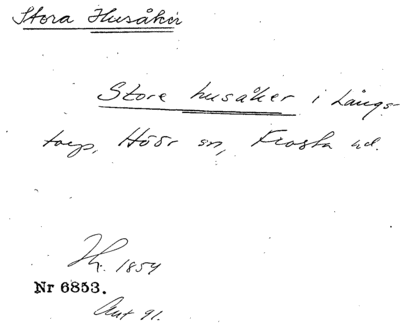 Stora Husåker
Store husåker i Långs-
torp, Höör sn, Frosta hd.
Hr. 1854
Nr 6853.
Ant 91.